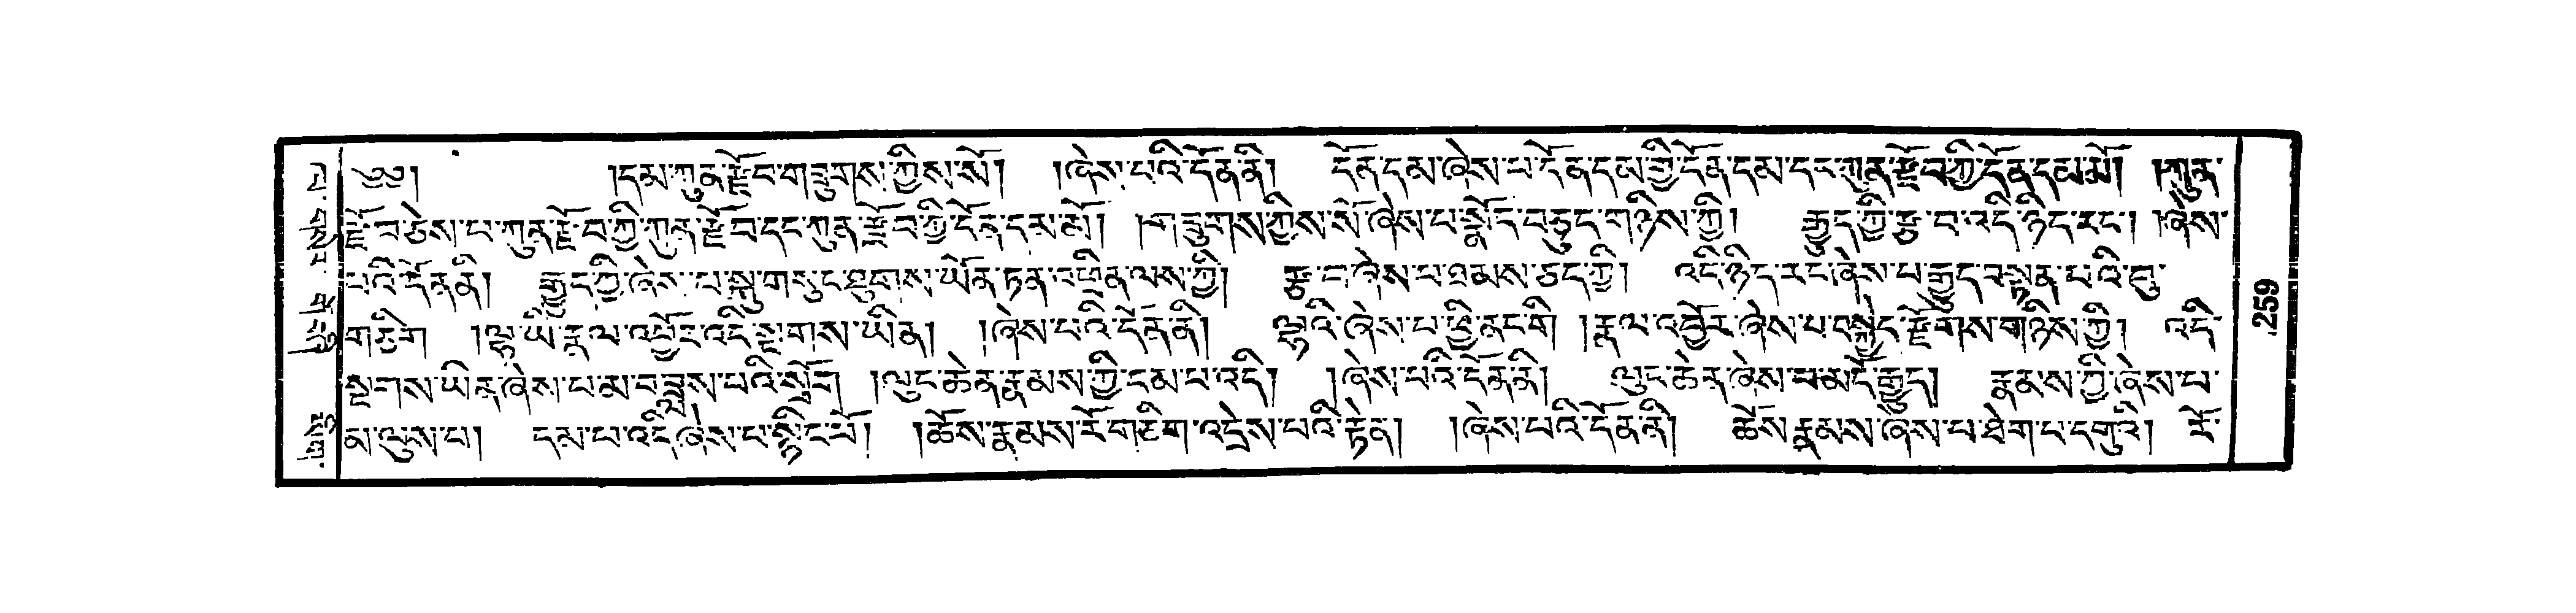 ༄༅། །དམ་ཀུན་རྫོང་གཟུགས་ཀྱིས་སོ། །ཞེས་པའི་དོན་ནི། དོན་དམ་ཞེས་པ་དོན་དམ་ཀྱི་དོན་དམ་དང་ཀུན་རྫོབ་ཀྱི་དོན་དམ་མོ། །ཀུན་
རྫོབ་ཅེས་པ་ཀུན་རྫོབ་ཀྱི་ཀུན་རྫོབ་དང་ཀུན་རྫོབ་ཀྱི་དོན་དམ་མོ། །གཟུགས་ཀྱིས་སོ་ཞེས་པ་སྣོད་བཅུད་གཉིས་ཀྱི། རྒྱུད་ཀྱི་རྩ་བ་འདི་ཉིད་རང་། །ཞེས་
པའི་དོན་ནི། རྒྱུད་ཀྱི་ཞེས་པ་སྐུ་གསུང་ཐུགས་ཡོན་ཏན་འཕྲིན་ལས་ཀྱི། རྩ་བ་ཞེས་པ་ཐམས་ཅད་ཀྱི། འདི་ཉིད་རང་ཞེས་པ་རྒྱུད་བསྟན་པའི་བུ་
གཅིག །ལྷ་ཡི་རྣལ་འབྱོར་འདི་སྔགས་ཡིན། །ཞེས་པའི་དོན་ནི། ལྷའི་ཞེས་པ་ཕྱི་ནང་གི །རྣལ་འབྱོར་ཞེས་པ་བསྐྱེད་རྫོགས་གཉིས་ཀྱི། འདི་
སྔགས་ཡིན་ཞེས་པ་མ་བཟླས་པའི་སྲོག །ལུང་ཆེན་རྣམས་ཀྱི་དམ་པ་འདི། །ཞེས་པའི་དོན་ནི། ལུང་ཆེན་ཞེས་པ་མདོ་རྒྱུད། རྣམས་ཀྱི་ཞེས་པ་
མ་ལུས་པ། དམ་པ་འདི་ཞེས་པ་སྙིང་པོ། །ཆོས་རྣམས་རོ་གཅིག་འདྲེས་པའི་རྟེན། །ཞེས་པའི་དོན་ནི། ཆོས་རྣམས་ཞེས་པ་ཐེག་པ་དགུའི། རོ་
259